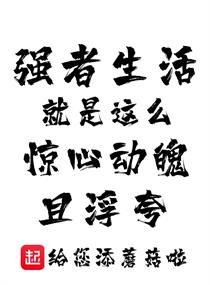 强者生活
就是这么
惊心动魄
且浮夸
起 给您添蘑菇啦